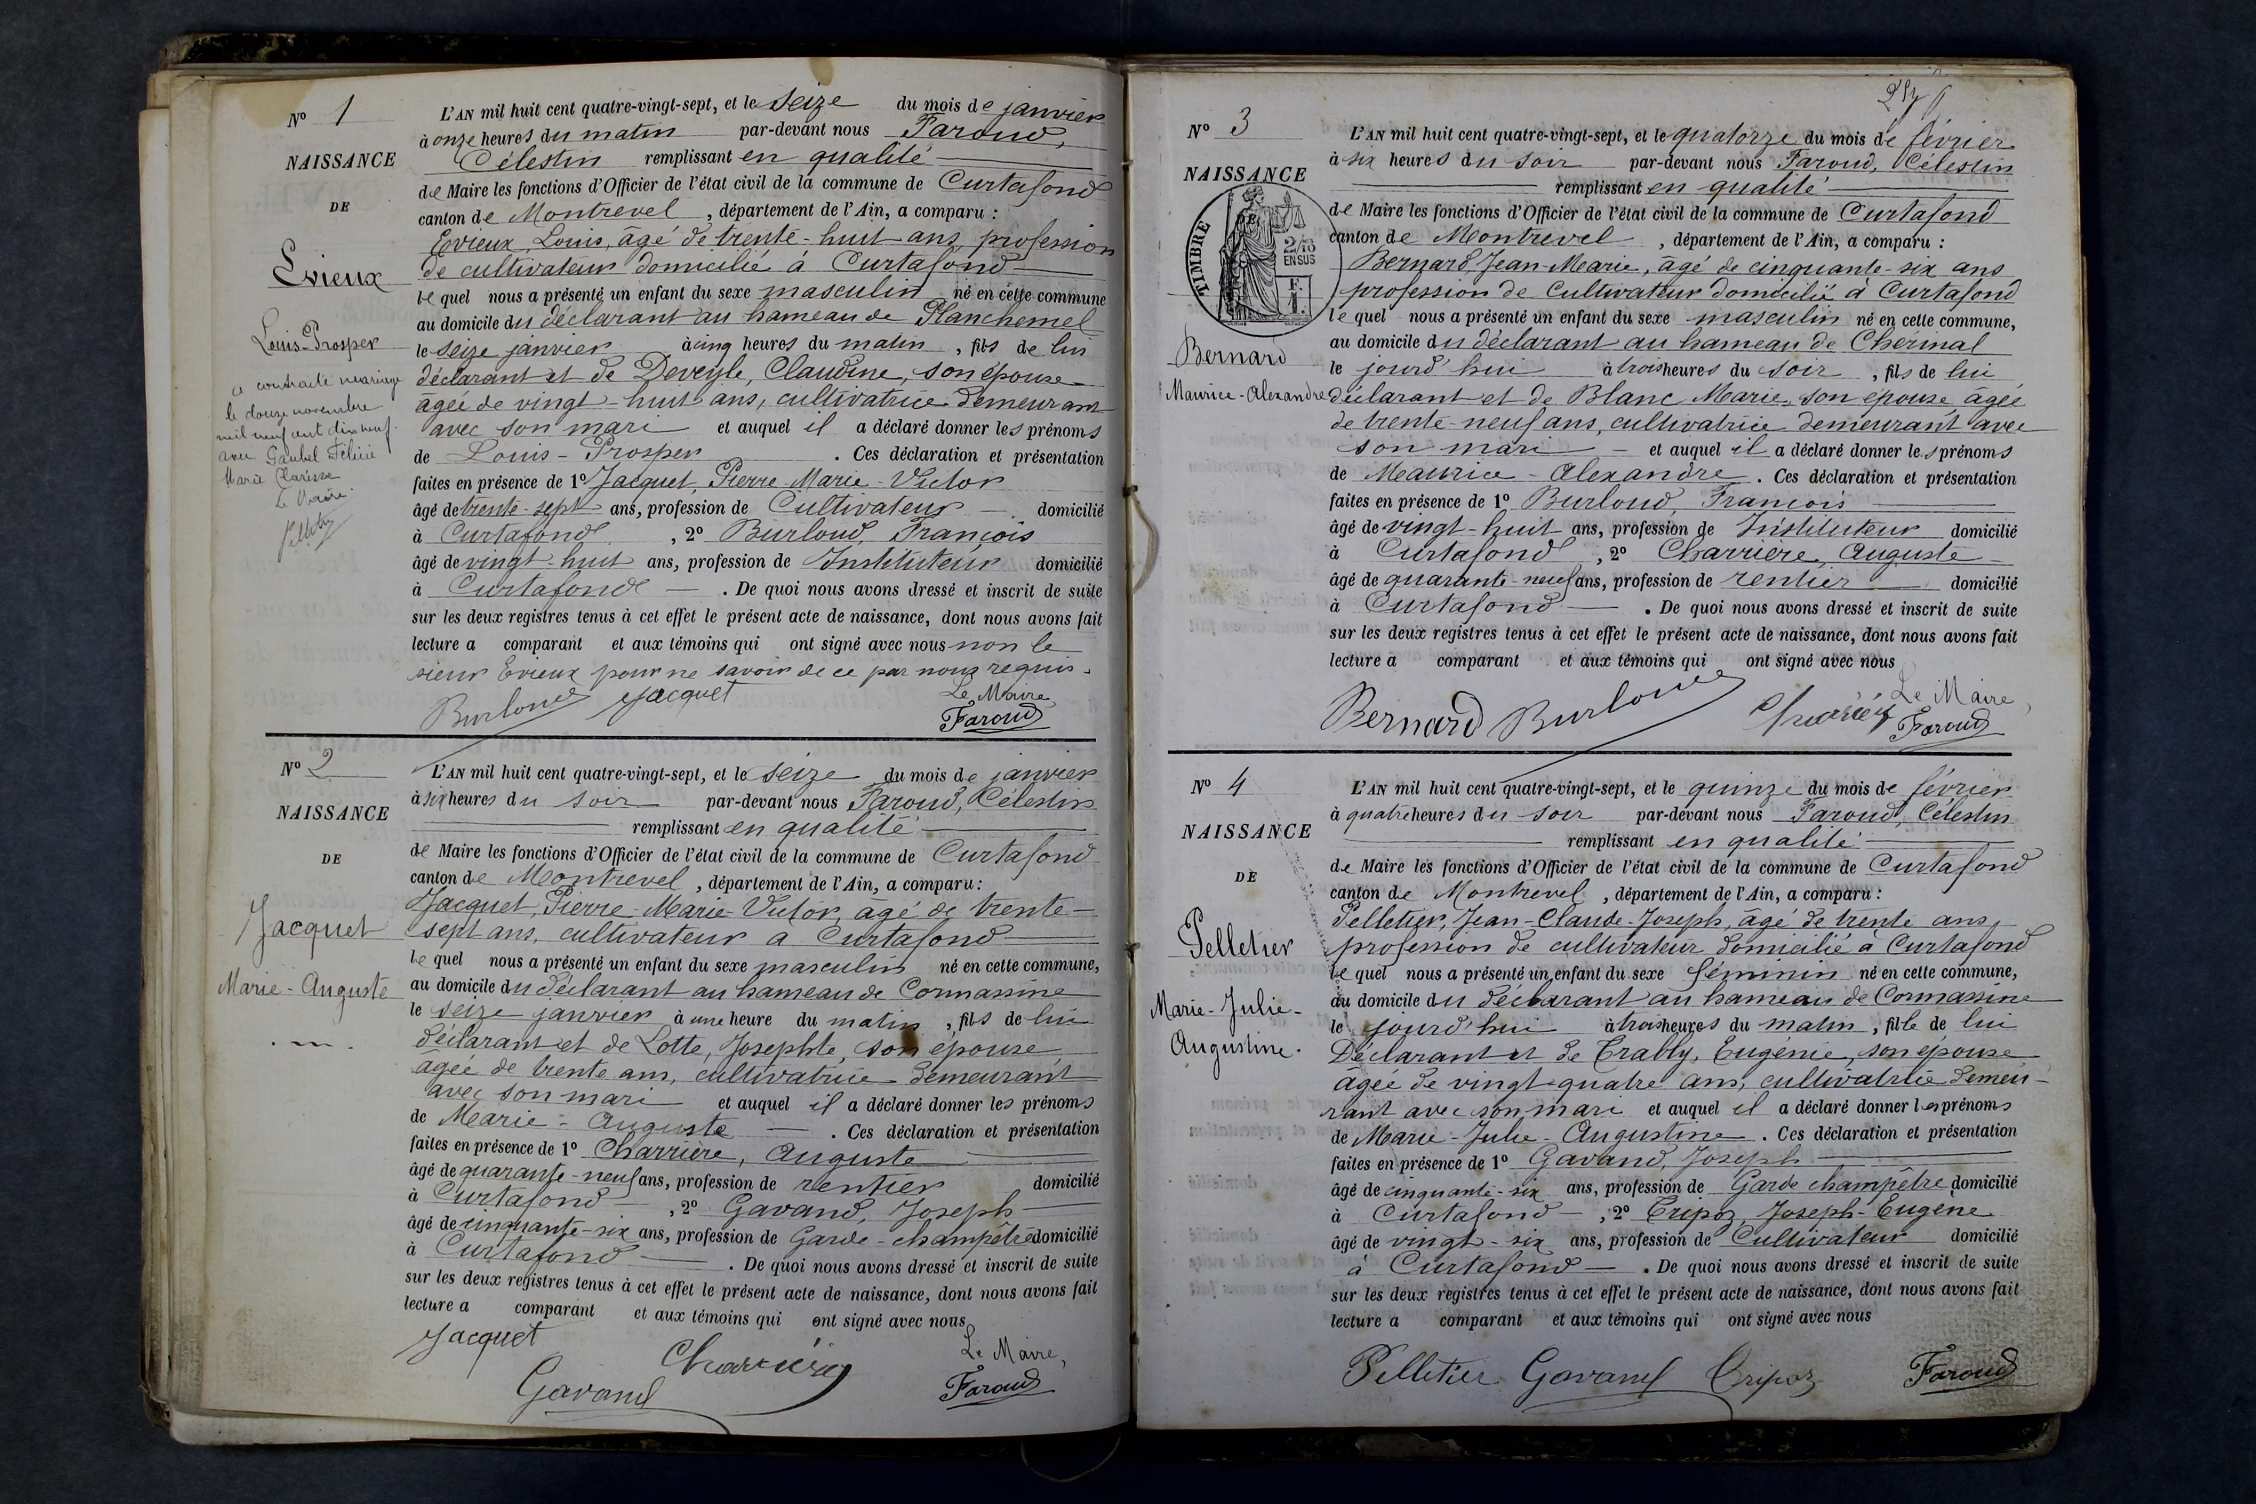 N° 1
NAISSANCE
DE
Evieux
Louis-Prosper
a contracté mariage
le douze novembre
mil neuf cent dix neuf
avec Gaubel Félicie
Marie Clarisse
Le Maire
L'AN mil huit cent quatre-vingt-sept, et le seize du mois de janvier
à onze heures du matin par-devant nous Faroud,
Célestin remplissant en qualité
de Maire les fonctions d'Officier de l'état civil de la commune de Curtafond
canton de Montrevel, département de l'Ain, a comparu :
Evieux Louis, âgé de trente-huit ans, profession
de cultivateur domicilié à Curtafond
lequel nous a présenté un enfant du sexe masculin né en cette commune
au domicile du déclarant au hameau de Planchemel
le seize janvier à cinq heures du matin, fils de lui
déclarant et de Deveyle, Claudine, son épouse
âgée de vingt-huit ans, cultivatrice demeurant
avec son mari et auquel il a déclaré donner les prénoms
de Louis-Prosper. Ces déclaration et présentation
faites en présence de 1° Jacquet, Pierre-Marie-Victor
âgé de trente-sept ans, profession de Cultivateur domicilié
à Curtafond, 2° Burloud François
âgé de vingt-huit ans, profession de Instituteur domicilié
à Curtafond. De quoi nous avons dressé et inscrit de suite
sur les deux registres tenus à cet effet le présent acte de naissance, dont nous avons fait
lecture a comparant et aux témoins qui ont signé avec nous non le
sieur Evieux pour ne savoir de ce par nous requis.
Burloud Jacquet Le Maire
Faroud
N° 2
NAISSANCE
DE
Jacquet
Marie-Auguste
L'AN mil huit cent quatre-vingt-sept, et le seize du mois de janvier
à six heures du soir par-devant nous Faroud, Célestin
remplissant en qualité
de Maire les fonctions d'Officier de l'état civil de la commune de Curtafond
canton de Montrevel, département de l'Ain, a comparu :
Jacquet, Pierre-Marie-Victor, âgé de trente-
sept ans, cultivateur a Curtafond
lequel nous a présenté un enfant du sexe masculin né en cette commune,
au domicile du déclarant au hameau de Cormassine
le seize janvier à une heure du matin, fils de lui
déclarant et de Lotte, Josephte, son épouse,
âgée de trente ans, cultivatrice demeurant
avec son mari et auquel il a déclaré donner les prénoms
de Marie-Auguste. Ces déclaration et présentation
faites en présence de 1° Charriere, Auguste
âgé de quarante-neuf ans, profession de rentier domicilié
à Curtafond, 2° Gavand, Joseph
âgé de cinquante-six ans, profession de Garde-champêtre domicilié
à Curtafond. De quoi nous avons dressé et inscrit de suite
sur les deux registres tenus à cet effet le présent acte de naissance, dont nous avons fait
lecture a comparant et aux témoins qui ont signé avec nous
Jacquet Le Maire,
Gavand Charrière Faroud
N° 3
NAISSANCE
TIMBRE
DE
2/10
EN SUS
F.
1.
Bernard
Maurice-Alexandre
L'AN mil huit cent quatre-vingt-sept, et le quatorze du mois de février
à six heures du soir par-devant nous Faroud, Célestin
remplissant en qualité
de Maire les fonctions d'Officier de l'état civil de la commune de Curtafond
canton de Montrevel, département de l'Ain, a comparu :
Bernard, Jean-Marie, âgé de cinquante-six ans
profession de Cultivateur domicilié à Curtafond
lequel nous a présenté un enfant du sexe masculin né en cette commune,
au domicile du déclarant au hameau de Chermal
le jourd'hui à trois heures du soir, fils de lui
déclarant et de Blanc Marie, son épouse âgée
de trente-neuf ans, cultivatrice demeurant avec
son mari et auquel il a déclaré donner les prénoms
de Maurice-Alexandre. Ces déclaration et présentation
faites en présence de 1° Burloud, François
âgé de vingt-huit ans, profession de Instituteur domicilié
à Curtafond, 2° Charriere, Auguste
âgé de quarante-neuf ans, profession de rentier domicilié
à Curtafond. De quoi nous avons dressé et inscrit de suite
sur les deux registres tenus à cet effet le présent acte de naissance, dont nous avons fait
lecture a comparant et aux témoins qui ont signé avec nous
Bernard Burloud Charrière Le Maire,
Faroud
N° 4
NAISSANCE
DE
Pelletier
Marie-Julie-
Augustine.
L'AN mil huit cent quatre-vingt-sept, et le quinze du mois de février
à quatre heures du soir par-devant nous Faroud, Célestin
remplissant en qualité
de Maire les fonctions d'Officier de l'état civil de la commune de Curtafond
canton de Montrevel, département de l'Ain, a comparu :
Pelletier, Jean-Claude-Joseph, âgé de trente ans,
profession de cultivateur domicilié à Curtafond
lequel nous a présenté un enfant du sexe féminin né en cette commune,
au domicile du déclarant au hameau de Cormassine
le jourd'hui à trois heures du matin, fille de lui
Déclarant et de Trably, Eugénie, son épouse
âgée de vingt-quatre ans, cultivatrice demeu-
rant avec son mari et auquel il a déclaré donner les prénoms
de Marie-Julie-Augustine. Ces déclaration et présentation
faites en présence de 1° Gavand, Joseph
âgé de cinquante-six ans, profession de Garde champêtre domicilié
à Curtafond, 2° Tripoz, Joseph-Eugène
âgé de vingt-six ans, profession de Cultivateur domicilié
à Curtafond. De quoi nous avons dressé et inscrit de suite
sur les deux registres tenus à cet effet le présent acte de naissance, dont nous avons fait
lecture a comparant et aux témoins qui ont signé avec nous
Pelletier Gavand Tripoz Faroud